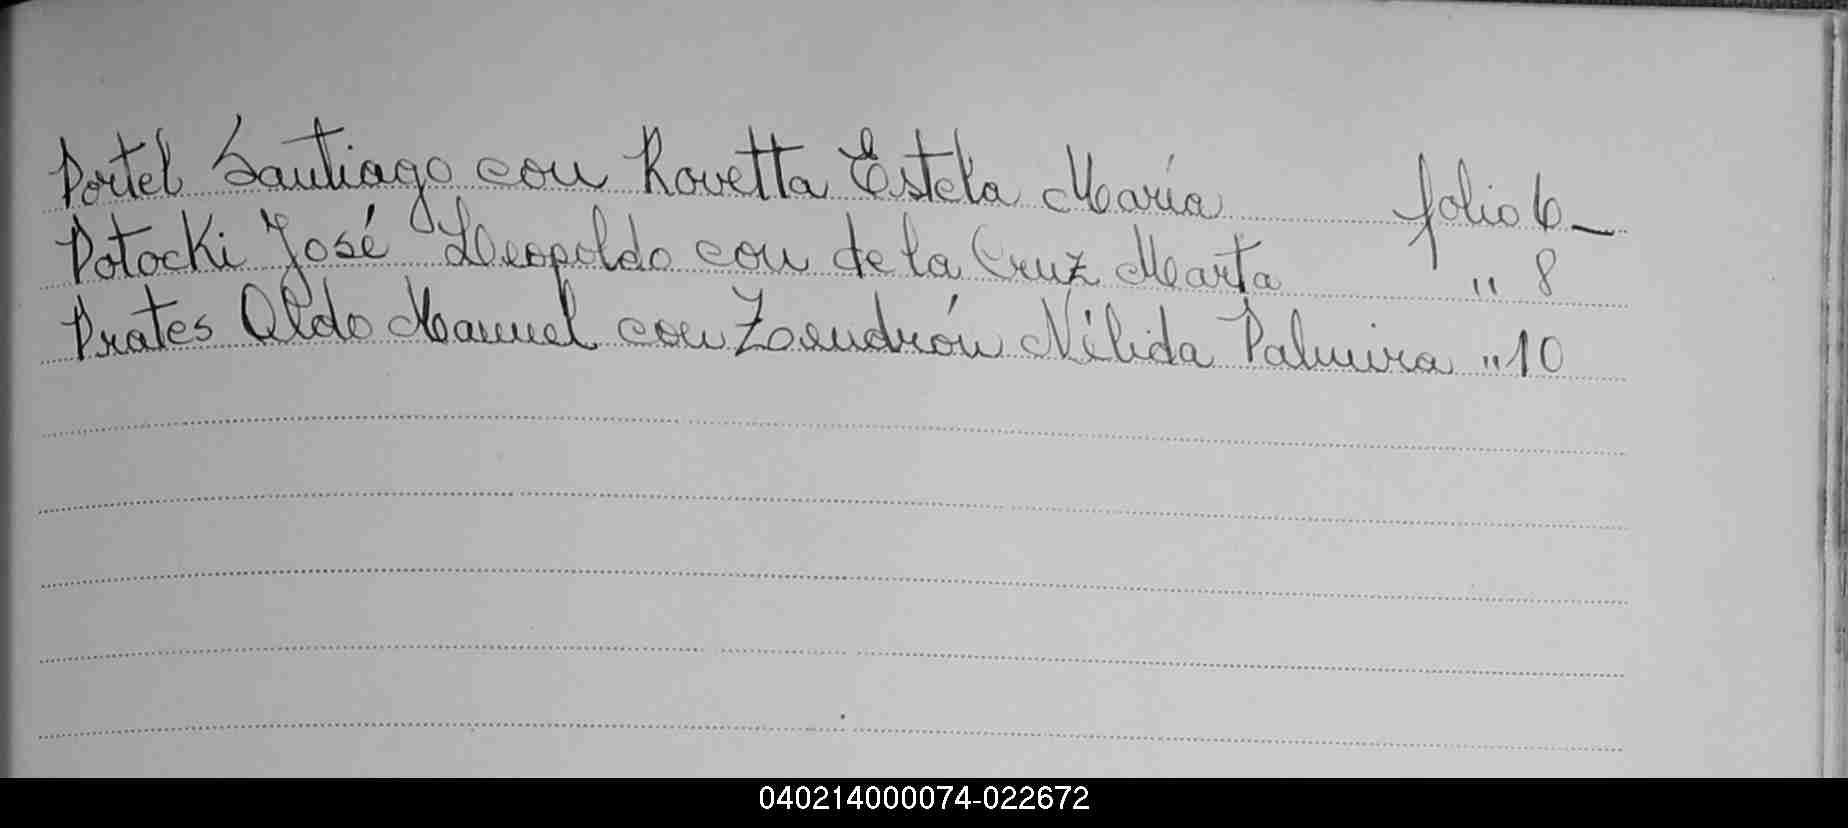 Portel Santiago con Rovetta Estela María folio 6_
Potocki José Leopoldo con de la Cruz Marta " 8
Prates Aldo Manuel con Zoendrón Nélida Palmira " 10
040214000074-022672